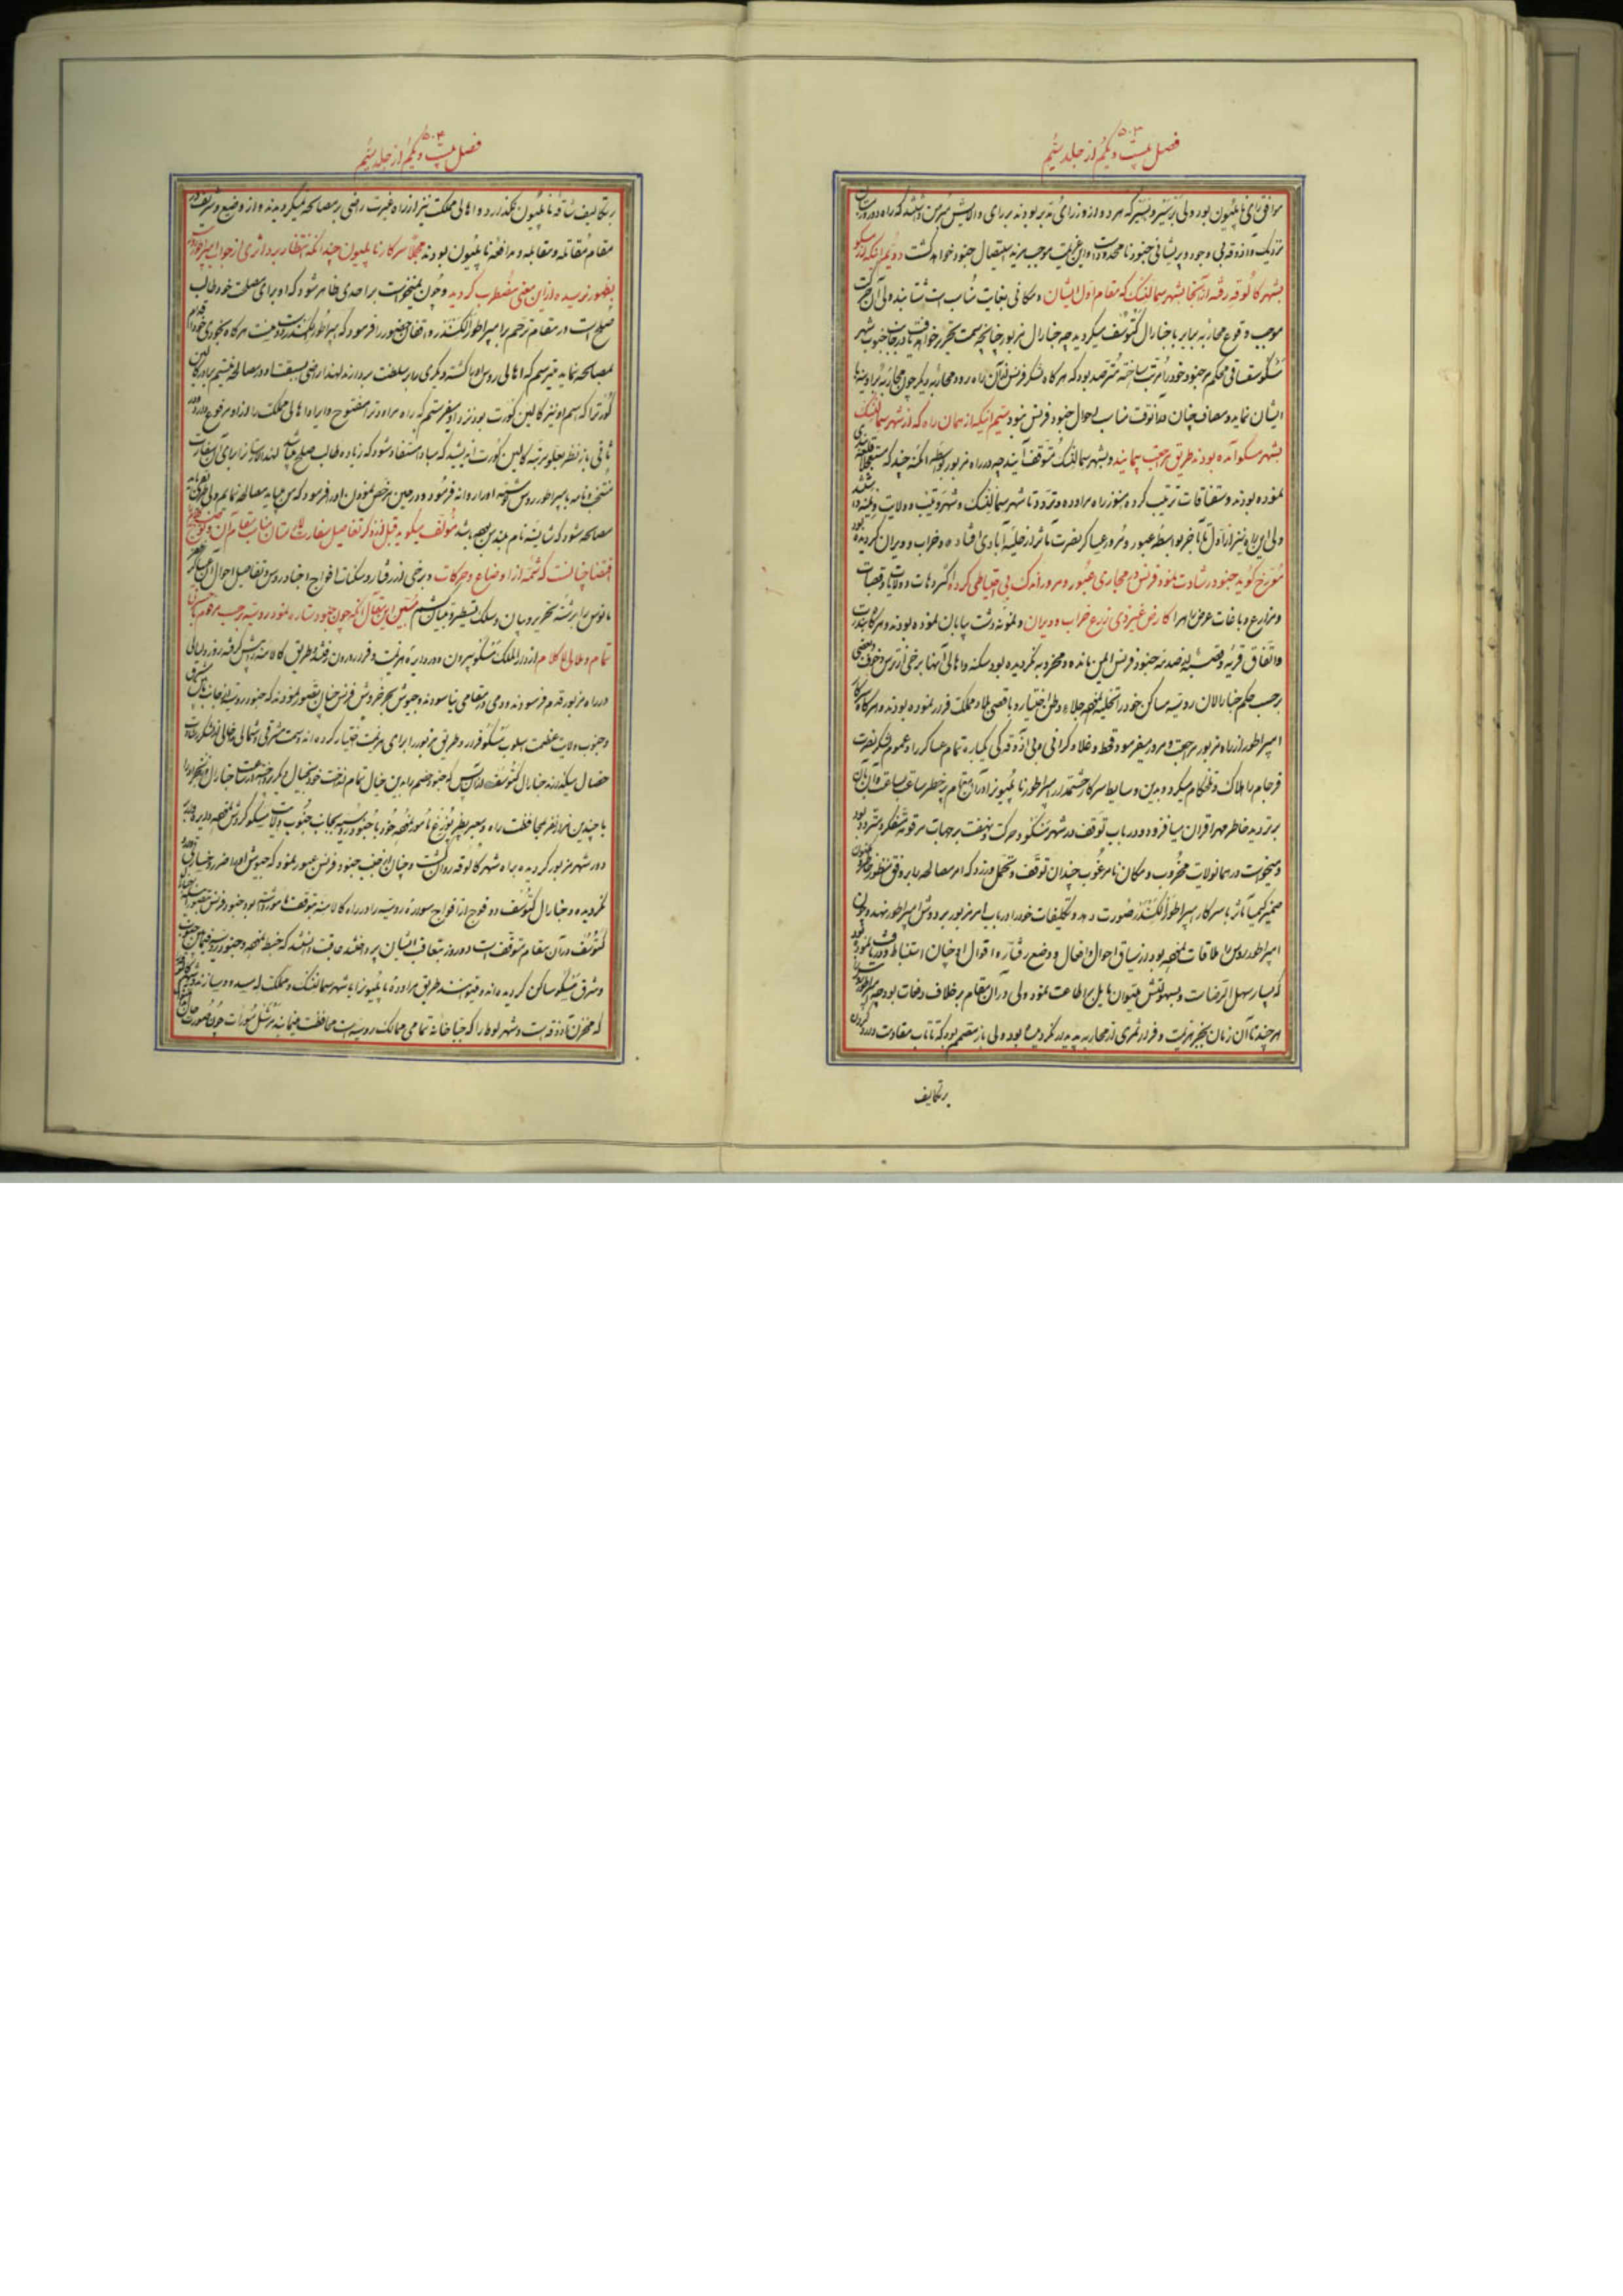 ۵۰۳
فصل بیست و یکم از جلد سیم
موافق رای ناپلیون بود ولی برتیر و بسیر که هر دو از وزرای مدبر بودند برای والایش مبرهن داشتند که راه دور
نزدیک و آذوقه بی وجود و پریشانی جنود نامحدود است و این عزیمت موجب مزید استیصال جنود خواهد گشت دویم اینکه از مسکو
بشهر کالوقه رفته از آنجا بشهر سمالنسک که مقام اول ایشان و مکانی بغایت مناسب است شتابند ولی آن حرکت
موجب وقوع محاربه برابر با جنارال کتوسف میگردید چه جنارال مزبور چنانچه سمت تحریر خواهد یافت در جانب جنوب شهر
مسکو سقناقی محکم بر جنود خود مرتب ساخته مترصد بود که هر گاه لشکر فرنس از آن راه رود محاربه دیگر چون محاربه برادینه با
ایشان نماید و مصاف چنان در آنوقت مناسب احوال جنود فرنس نبود سیم اینکه از همان راه که از شهر سمالنسک
بشهر مسکو آمده بودند طریق مراجعت پیمایند و بشهر سمالنسک متوقف آیند چه در راه مزبور بواسطه امکنه چند که مستحکم
نموده بودند و سقناقات ترتیب کرده هنوز راه مراوده و تردد تا شهر سمالنسک و شهر وتیبسک و ولایت
ولی این راه نیز از اول تا آخر بواسطه عبور و مرور عساکر نصرت مآثر از حلیه آبادی افتاده و خراب و ویران گردیده بود
مورخ گوید جنود رشادت نمود فرنس در مجاری عبور و مرور اندک بی احتیاطی کرده اکثر دهات و ولایات و قصبات
و مزارع و باغات عرض راه را کارض غیر ذی زرع خراب و ویران و نمونه دشت و بیابان نموده بودند و هر گاه
و اتفاق قریه و قصبه از صدمه جنود فرنس ایمن مانده و مخروبه نگردیده بود سکنه و اهالی آنها برخی از ترس و خوف و بعضی
بر حسب حکم جنارالان روسیه مساکن خود را تخلیه نموده جلاء وطن اختیار و باقصی بلاد مملکت فرار نموده بودند و هر گاه سرکار
امپراطور از راه مزبور مراجعت و مرور میفرمود قحط و غلا و گرانی و بی آذوقه گی یکباره تمام عساکر را و عموم لشکر نصرت
فرجام را هلاک و تلخکام میگرد و بدین وسایط سرکار حشمتمدار امپراطور ناپلیون را در آن مقام پر خطر ساعت بساعت و آن بآن
بر تردید خاطر مهر اقران میافزود و در باب توقف در شهر مسکو و حرکت و نهضت بر جهات مرقومه متفکر و متردد بود
و میخواست در همان ولایت مخروب و مکان نامرغوب چندان توقف و تحمل ورزد که امر مصالحه را بر وفق منظور خاطر
ضمیر کیمیا تاثر با سرکار امپراطور الکسندر صورت دهد و تکلیفات خود را در باب امر مزبور بر دوش امپراطور نهد و چون
امپراطور روس را ملاقات نموده بود و از سیاق احوال و افعال و وضع رفتار و اقوال او چنان استنباط و دریافت نموده بود
که بسیار سهل الرضاست و بسهولتش میتوان مایل بر اطاعت نمود ولی در آن مقام بر خلاف دفعات بود چه امپراطور
هر چند تا آن زمان بجز هزیمت و فرار ثمری از محاربه پدیدار نگردیده بود ولی باز مصمم بود که تا تاب مقاومت دارد گردن
بر تکالیف
۵۰۴
فصل بیست و یکم از جلد سیم
بر تکالیف شاقه ناپلیون نگذارد و اهالی مملکت نیز از راه غیرت راضی بر مصالحه نمیگردیدند و از وضیع و شریف در
مقام مقاتله و مقابله و مدافعه ناپلیون بودند مجملا سرکار ناپلیون چندانکه انتظار برد اثری از جواب امپراطور
بظهور نرسیده از این معنی مضطرب گردید و چون نمیخواست بر احدی ظاهر شود که او برای مصلحت خود طالب
صلح است در مقام ترحم بر امپراطور الکسندر واقفان حضور را فرمود که امپراطور الکسندر دوست من است هر گاه
بمصالحه ننماید میترسم که اهالی روس او را کشته و دیگری را بر سلطنت بردارند لهذا راضی بسبقت او در مصالحه میشوم باید کالین
کورت را که اسم او نیز کالین کورت بود نزد او بسفارت بفرستم که راه مراوده را مفتوح و ایراد اهالی مملکت را از او مرفوع دارد
ثانی باز نظر بعلو مرتبه کالین کورت اندیشید که مبادا مستفاد شود که زیاده طالب صلح میباشد لهذا لارستان را برای آن سفارت
منتخب و نامه بامپراطور روس نوشته او را روانه فرمود و در حین مرخص نمودن او را فرمود که من میباید مصالحه نمایم ولی بطریقی
مصالحه شود که شایسته نام بلند من بوده باشد مولف میگوید قبل از ذکر تفاصیل سفارت لارستان مناسب مقام آن و توضیح
اقتضا چنانست که شمه از اوضاع و حرکات و برخی از رفتار و سکنات افواج اجناد روس و تفاصیل احوال آن عساکر
مانوس را برشته تحریر و بیان و سلک تسطیر و تبیان کشم مبین این مقال آنکه چون جنود بسیار نمود روسیه بر حسب مرقوم
تمام و طی این کلام از دارالملک مسکو بیرون و در دایره هزیمت و فرار درون رفتند طریق کالامنه را پیش گرفته روز و لیالی
در راه مزبور قدم فرسوده و دمی در مقامی نیاسودند و جیوش بحر خروش فرنس چنان تصور نمودند که جنود روسیه از جانب مشرق
و جنوب ولایت عظمت اسلوب مسکو فرار و طریق مزبور را برای هزیمت اختیار کرده اند و سمت مشرقی و شمالی را خالی از لشکر
خصال میگذارند جنارال کتوسف از آن پس که جنود خصم را بدین خیال تمام انداخت خود بخیال دیگر پرداخته
با چندین هزار نفر بمحافظت راه و معبر پطرزبورغ مامور نموده خود با جنود روسیه بجانب جنوب ولایت مسکو گردش نموده
دور شهر مزبور گردیده براه شهر کالوقه روان گشت و چنان از جنب جنود فرنس عبور نمود که جیوش او را ضرر و خسارتی
نگردیده و جنارال کتوسف دو فوج از افواج سواره روسیه را در راه کالامنه متوقف داشته بود جنود فرنس
کتوسف در آن مقام متوقف است دو روز بتعاقب ایشان پرداختند عاقبت دانستند که خبط نموده و جنود روسیه فیمابین جنوب
و شرق مسکو ساکن گردیده اند و میتوانستند طریق مراوده ناپلیون را با شهر سمالنسک و مملکت له مسدود سازند و شهر کالوقه
که مخزن آذوقه است و شهر لوطا را که جباخانه تمامی ممالک روسیه است محافظت مینمایند